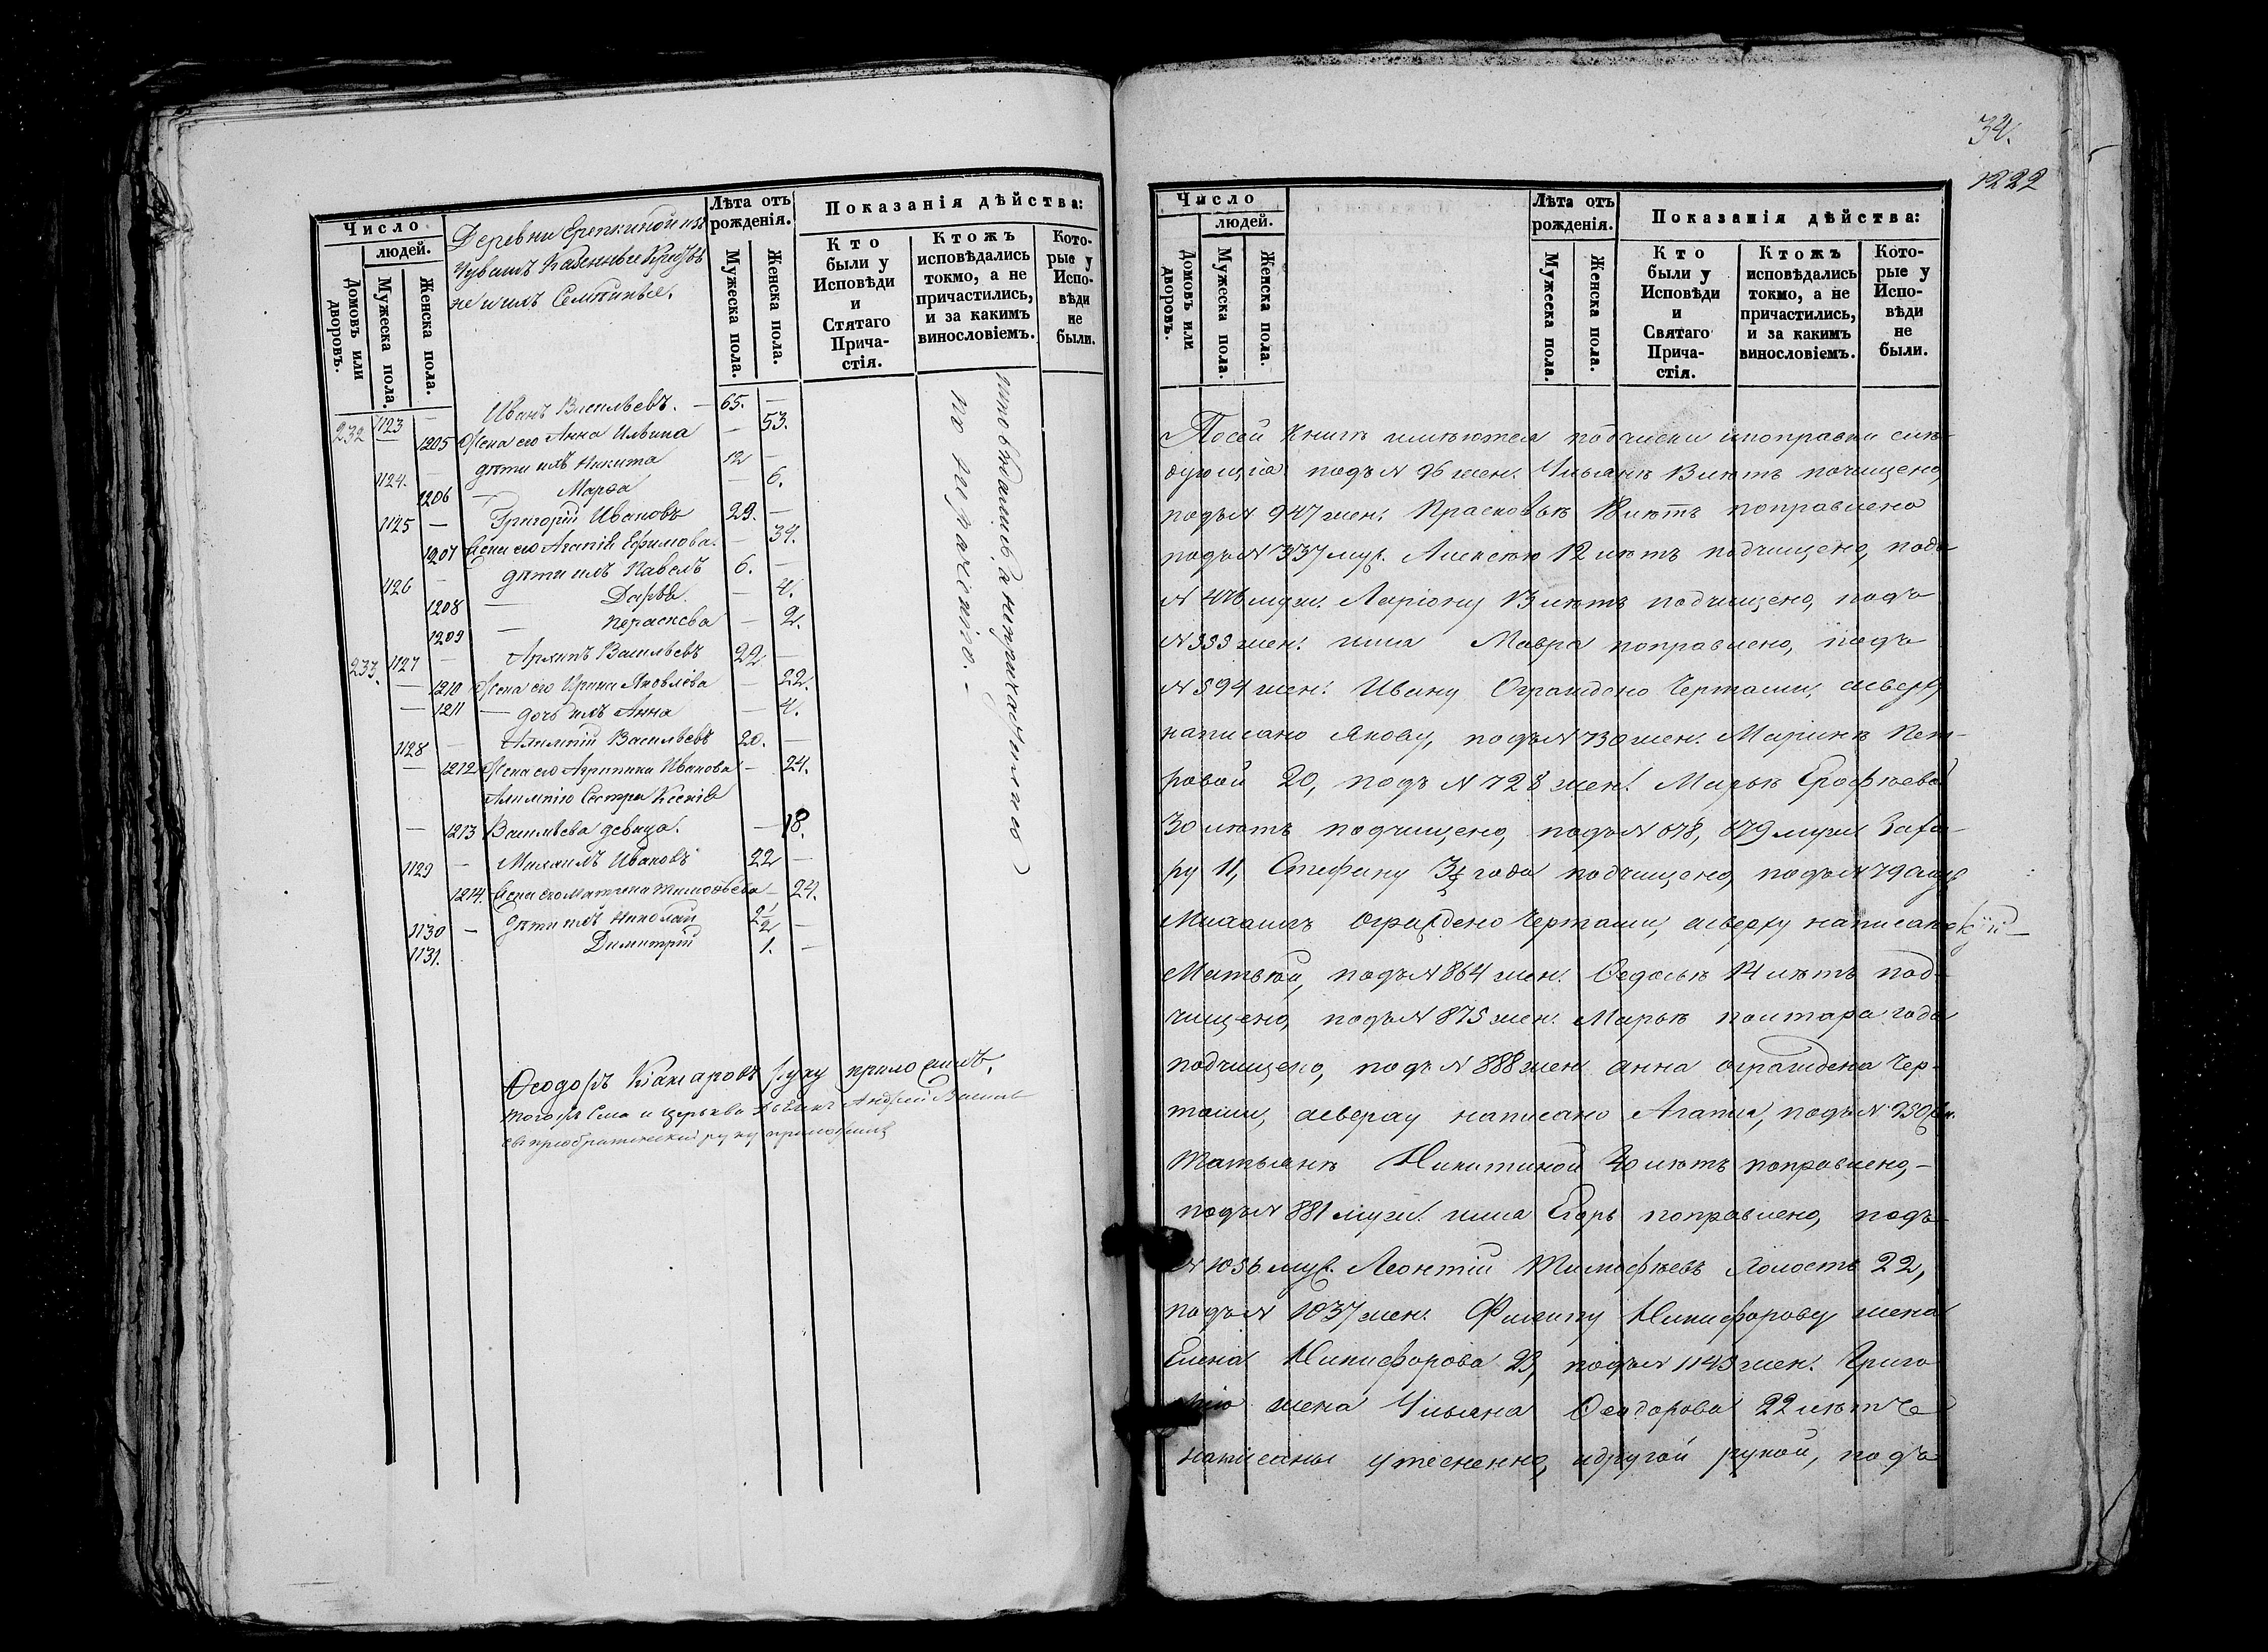 Число
людей.
Домовъ или дворовъ.
Мужеска пола.
Женска пола.
Деревни Ерепкиной изъ
Чувашъ Казенные Крест
не и ихъ Семьиные.
Лѣта отъ рожденія.
Мужеска пола.
Женска пола.
Показанія дѣйства:
Кто были у Исповѣди и Стятаго Прича-стія.
Ктожъ исповѣдались токмо, а не причастились, и за какимъ винословіемъ.
Кото-рые у Испо-вѣди не были.
232 1123 — Иванъ Васильевъ. — 65. —
1205 Жена его Анна Ильина — 53.
1124. — дѣти ихъ Никита 12 —
1206 — Марѳа — 6.
1125 — Григорій Ивановъ 29. —
1207 Жена его Агапія Ефимова. — 34.
1126 — дѣти ихъ Павелъ 6. —
1208 — Дарья. — 4.
1209 — Параскева — 2.
233. 1127 — Архипъ Васильевъ 22 —
— 1210 Жена его Ирина Яковлева — 22.
— 1211 — дочь ихъ Анна — 4.
1128 — Алимпій Васильевъ 20. —
— 1212 Жена его Агрипина Иванова — 24.
Алимпію Сестра Ксенія
— 1213 Васильева девица. — 18.
1129 — Михаилъ Ивановъ 22 —
1214. Жена его Матрена Тимоѳеева — 24.
1130 — Дѣти ихъ Николай 2½ —
1131. Димитрій 1. —
по нераченію. —
Ѳеодоръ руку приложилъ.
тогожъ Села и церкви Андрей
руку приложилъ
34.
1222
Число
людей.
Домовъ или дворовъ.
Мужеска пола.
Женска пола.
Лѣта отъ рожденія.
Мужеска пола.
Женска пола.
Показанія дѣйства:
Кто были у Исповѣди и Святаго Прича-стія.
Ктожъ исповѣдались токмо, а не причастились, и за какимъ винословіемъ.
Кото-рые у Испо-вѣди не были.
По сей книгѣ имѣются подчиски и поправки слѣ-
дующія: подъ № 96 жен. Ульянѣ 3 лѣтъ почищено,
подъ № 947 жен. Прасковьѣ 18 лѣтъ поправлено
подъ № 337 муж. Алексѣю 12 лѣтъ подчищено, подъ
№ 476 муж. Ларіону 13 лѣтъ подчищено, подъ
№ 533 жен. имя Мавра поправлено, подъ
№ 594 жен. Ивану Ограждено Чертами, а сверху
написано Якову, подъ № 730 жен. Маринѣ Пет-
ровой 20, подъ № 728 жен. Марьѣ Ерофѣевой
30 лѣтъ подчищено, подъ № 678, 679 муж. Заха-
ру 11, Стефану 3½ года подчищено, подъ № 790 муж
Михаилъ ограждено Чертами, а сверху написано
Матвѣй, подъ № 864 жен. Ѳедосьѣ 14 лѣтъ под-
чищено, подъ № 875 жен. Марьѣ полтора года
подчищено, подъ № 888 жен. анна ограждена Чер-
тами, а сверху написано Агапия, подъ № 930 жен.
Татьянѣ Никитиной 40 лѣтъ поправлено, —
подъ № 881 муж. имя Егоръ поправлено, подъ
№ 1036 муж. Леонтій Тимофѣевъ Холостъ 22,
подъ № 1037 жен. Филипу Никифорову жена
Елена Никифорова 23, подъ № 1143 жен. Григо
рію жена Ульяна Ѳеодорова 22 лѣтъ
написаны утесненно, и другой рукой, подъ